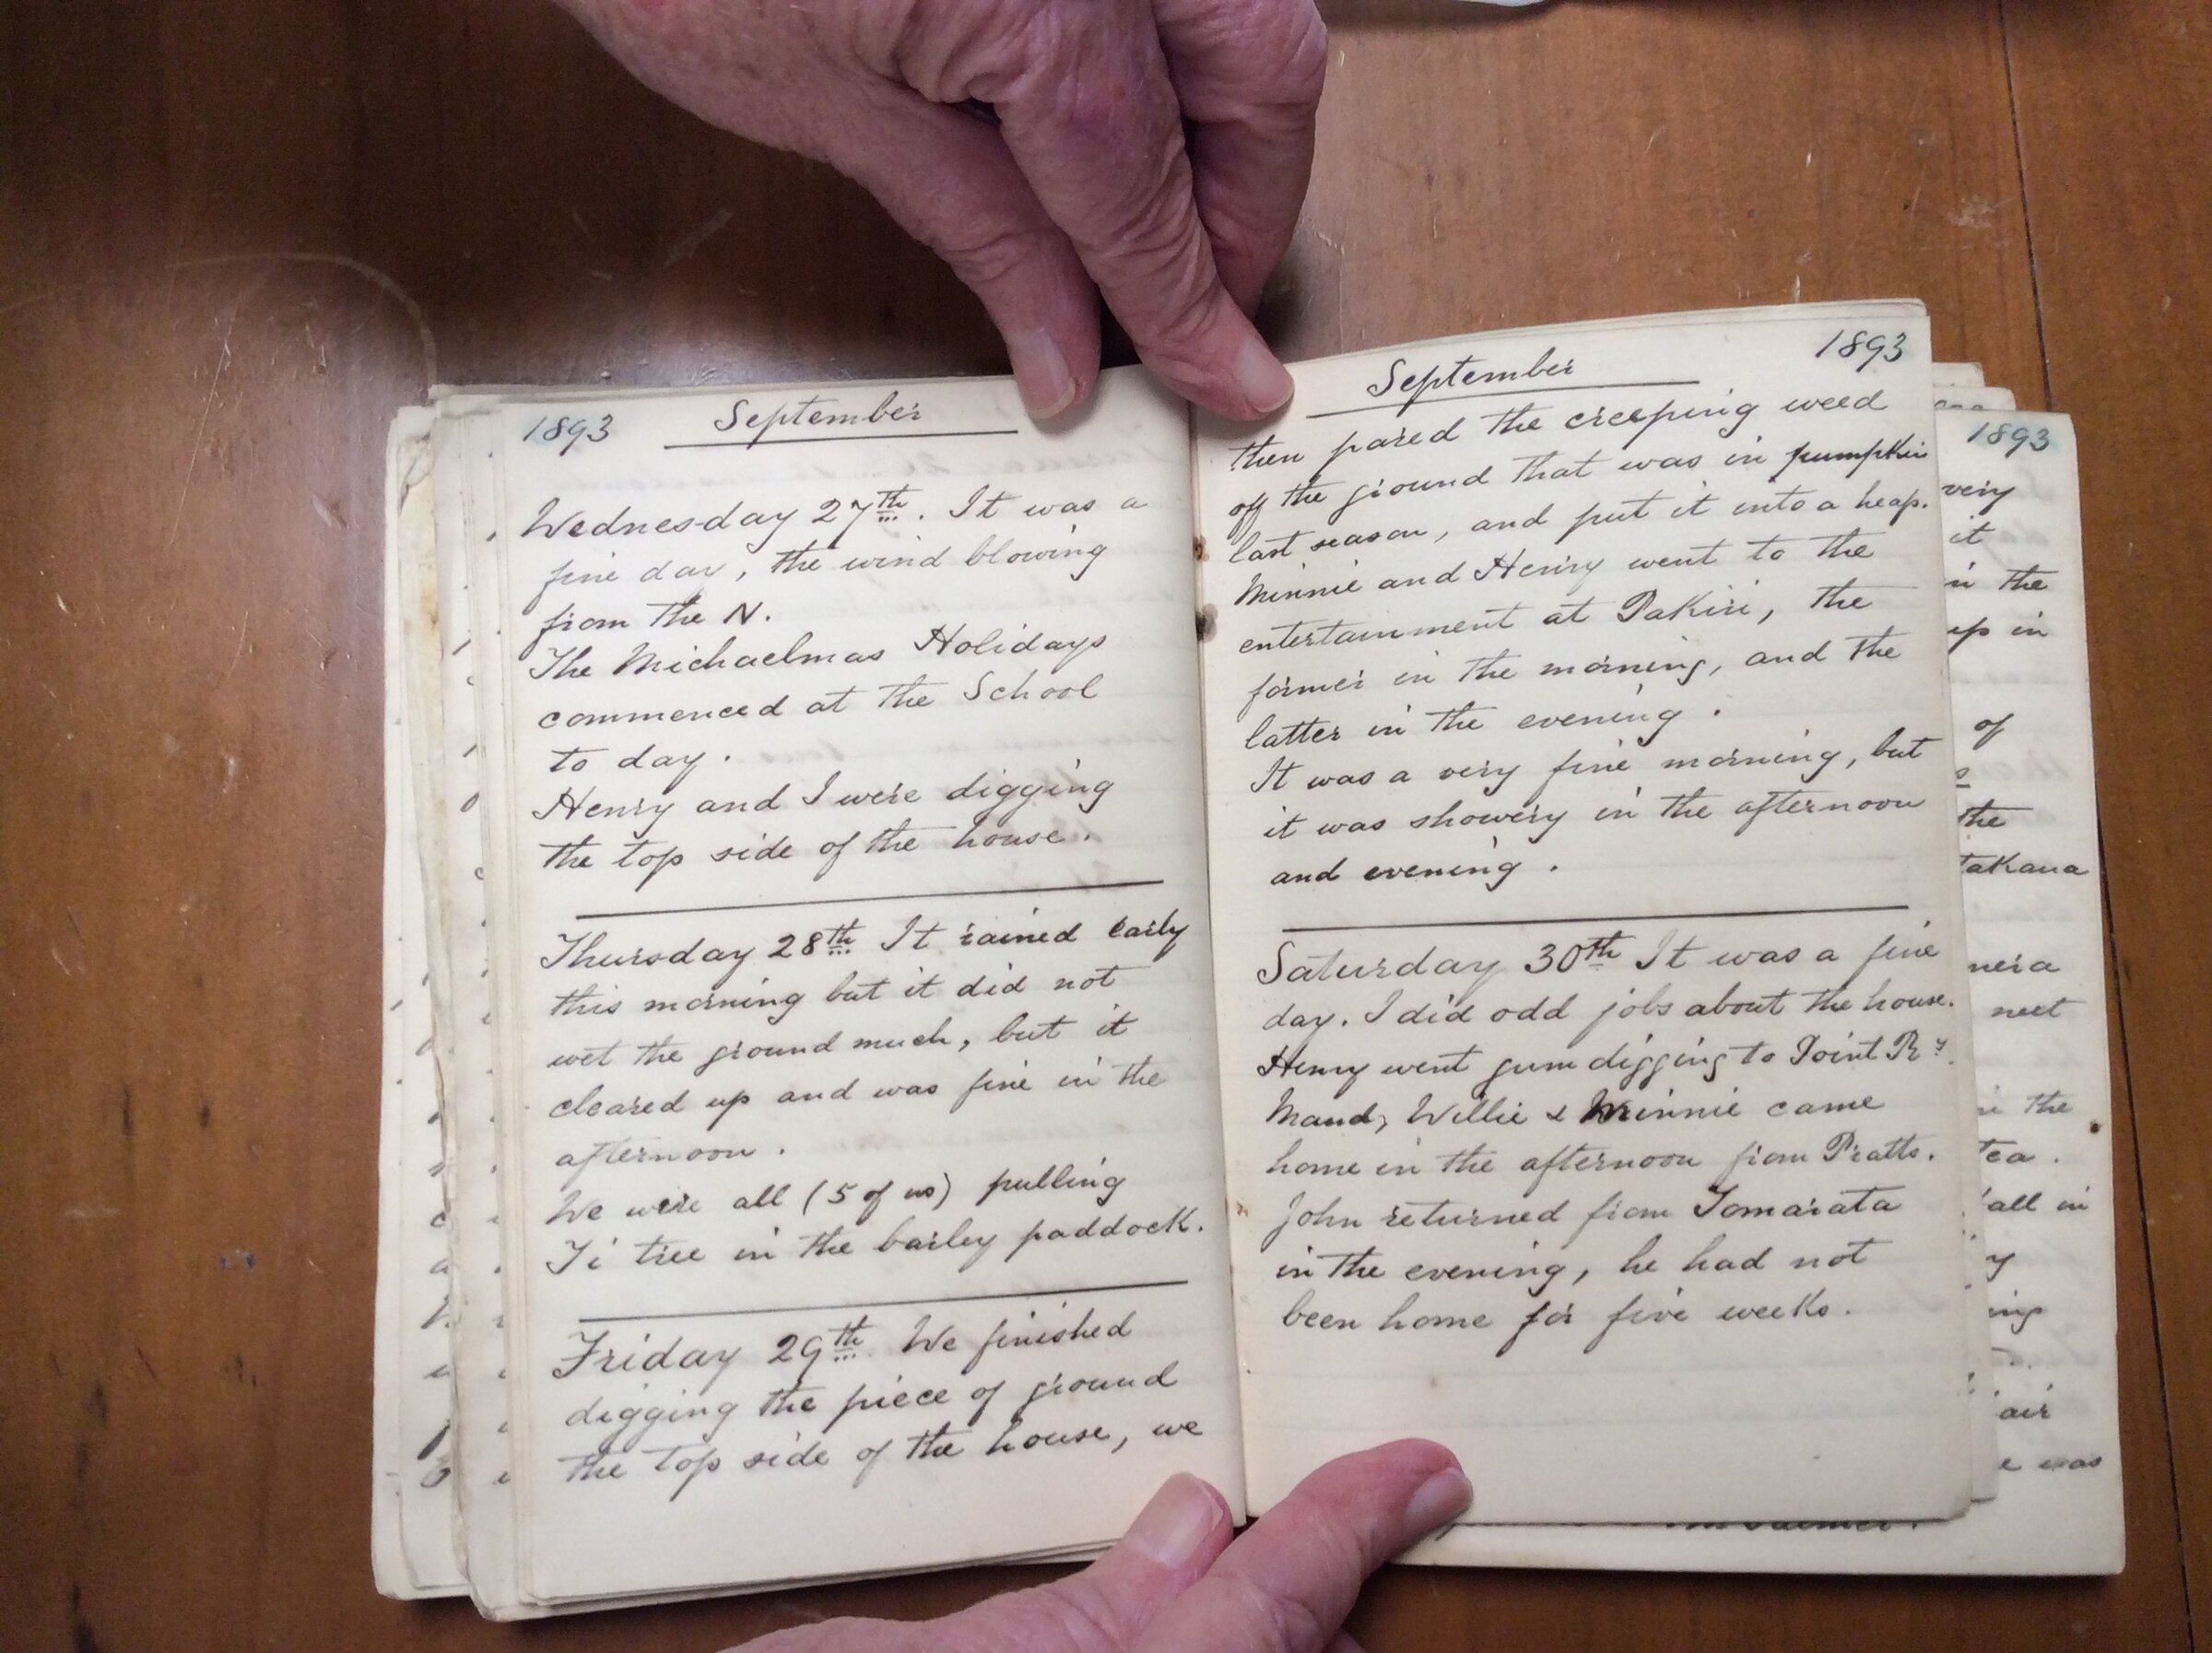 1893 September
Wednesday 27th. It was a
fine day, the wind blowing
from the N.
The Michaelmas Holidays
commenced at the School
to day.
Henry and I were digging
the top side of the house.
Thursday 28th It rained early
this morning but it did not
wet the ground much, but it
cleared up and was fine in the
afternoon.
We were all (5 of us) pulling
Ti tree in the barley paddock.
Friday 29th. We finished
digging the piece of ground
the top side of the house, we
September 1893
then pared the creeping weed
off the ground that was in pumpkin
last season, and put it into a heap.
Minnie and Henry went to the
entertainment at Pakiri, the
former in the morning, and the
latter in the evening.
It was a very fine morning, but
it was showery in the afternoon
and evening.
Saturday 30th It was a fine
day. I did odd jobs about the house.
Henry went gum digging to Point Ry.
Maud, Willie & Minnie came
home in the afternoon from Pratts.
John returned from Tomarata
in the evening, he had not
been home for five weeks.
1893
very
it
in the
up in
of
the
takana
nera
neet
the
tea.
all in
y
ing
air
was